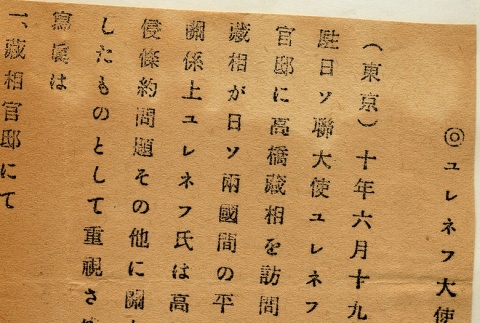 ◎ユレネフ大使
（東京）十年六月十九
駐日ソ聯大使ユレネフ
官邸に高橋藏相を訪問
藏相が日ソ兩國間の平
關係上ユレネフ氏は高
侵條約問題その他に關
したものとして重視さ
寫眞は
一、藏相官邸にて